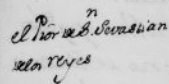 el Prior de S.n Sevastian
de los Reyes